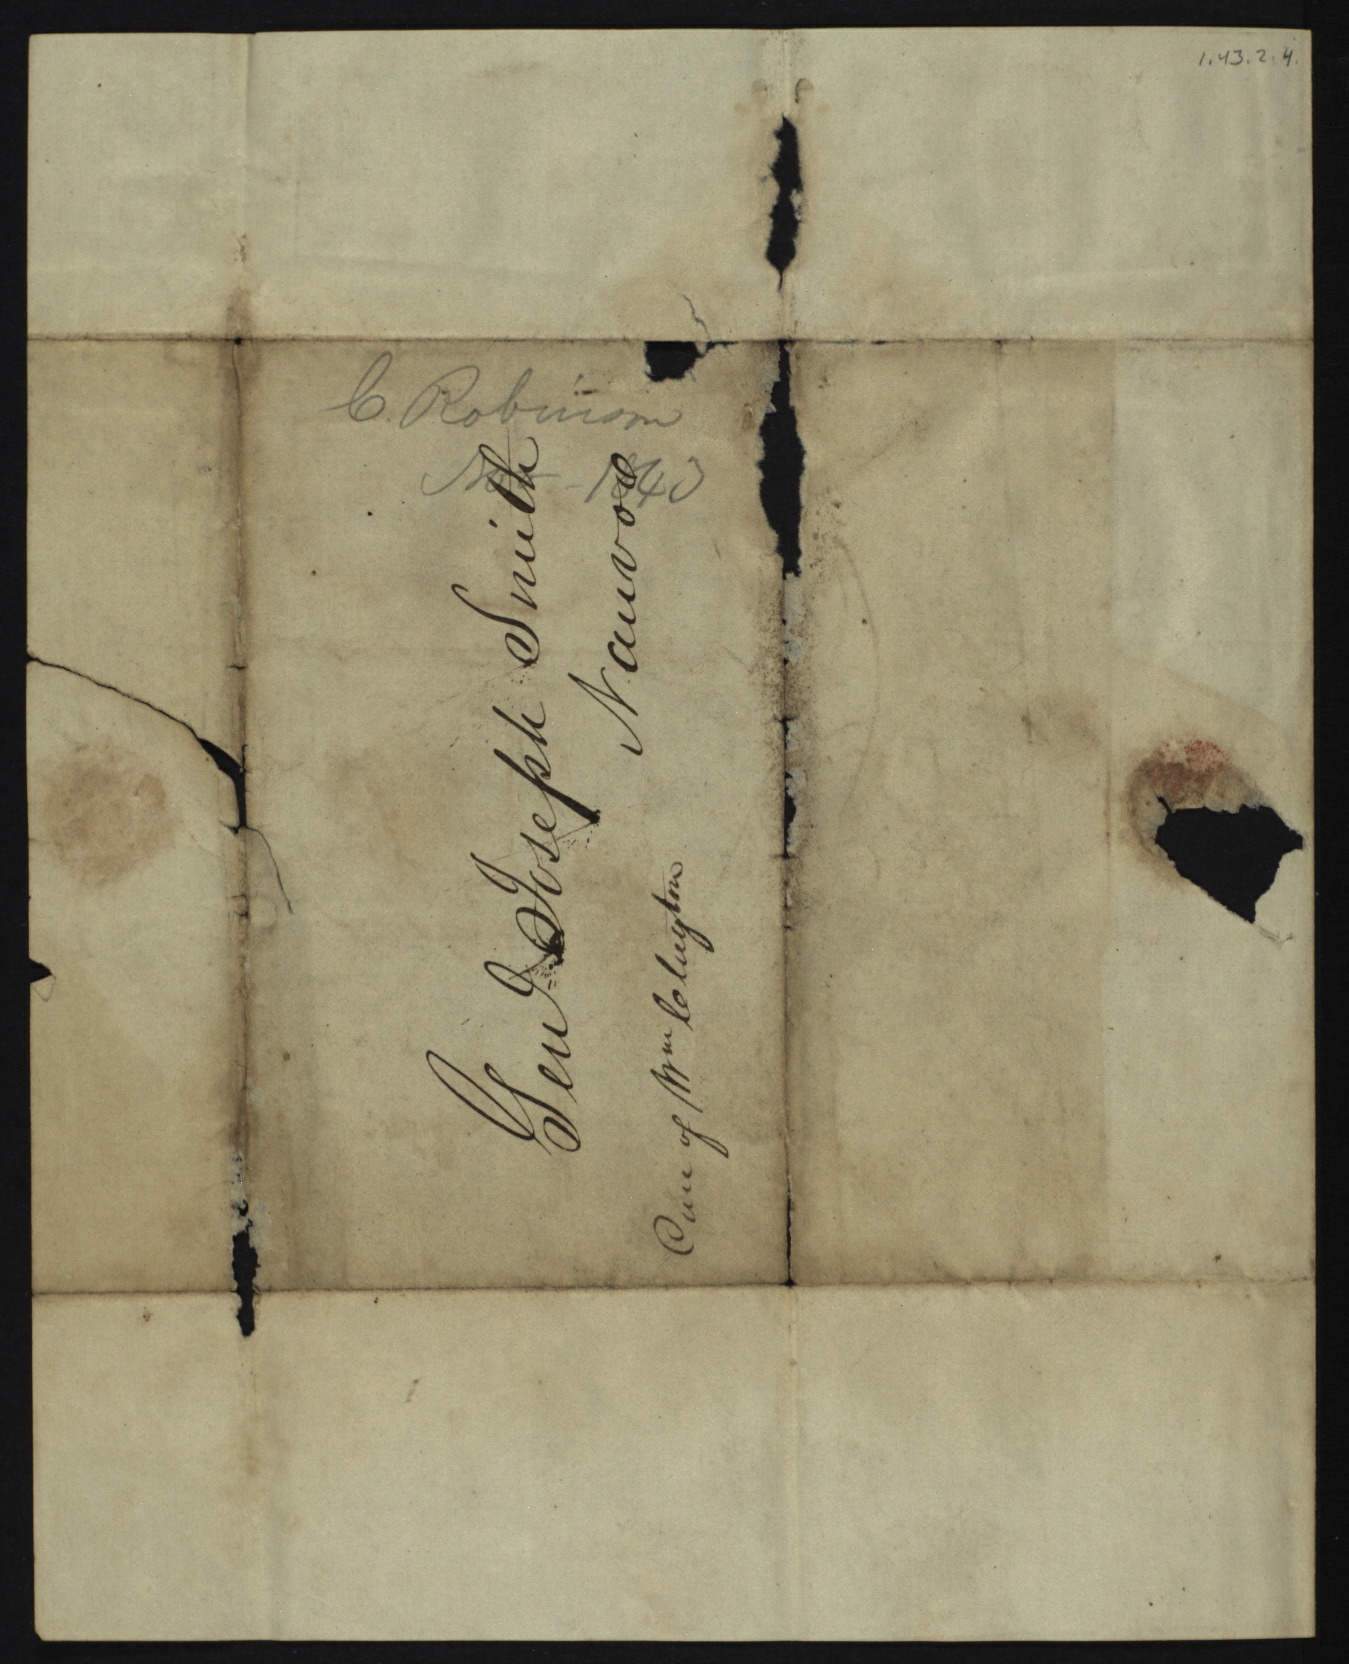 1.43.2.4.
C. Robinson
1843
Gen Joseph Smith
Nauvoo
Care of Wm Clayton